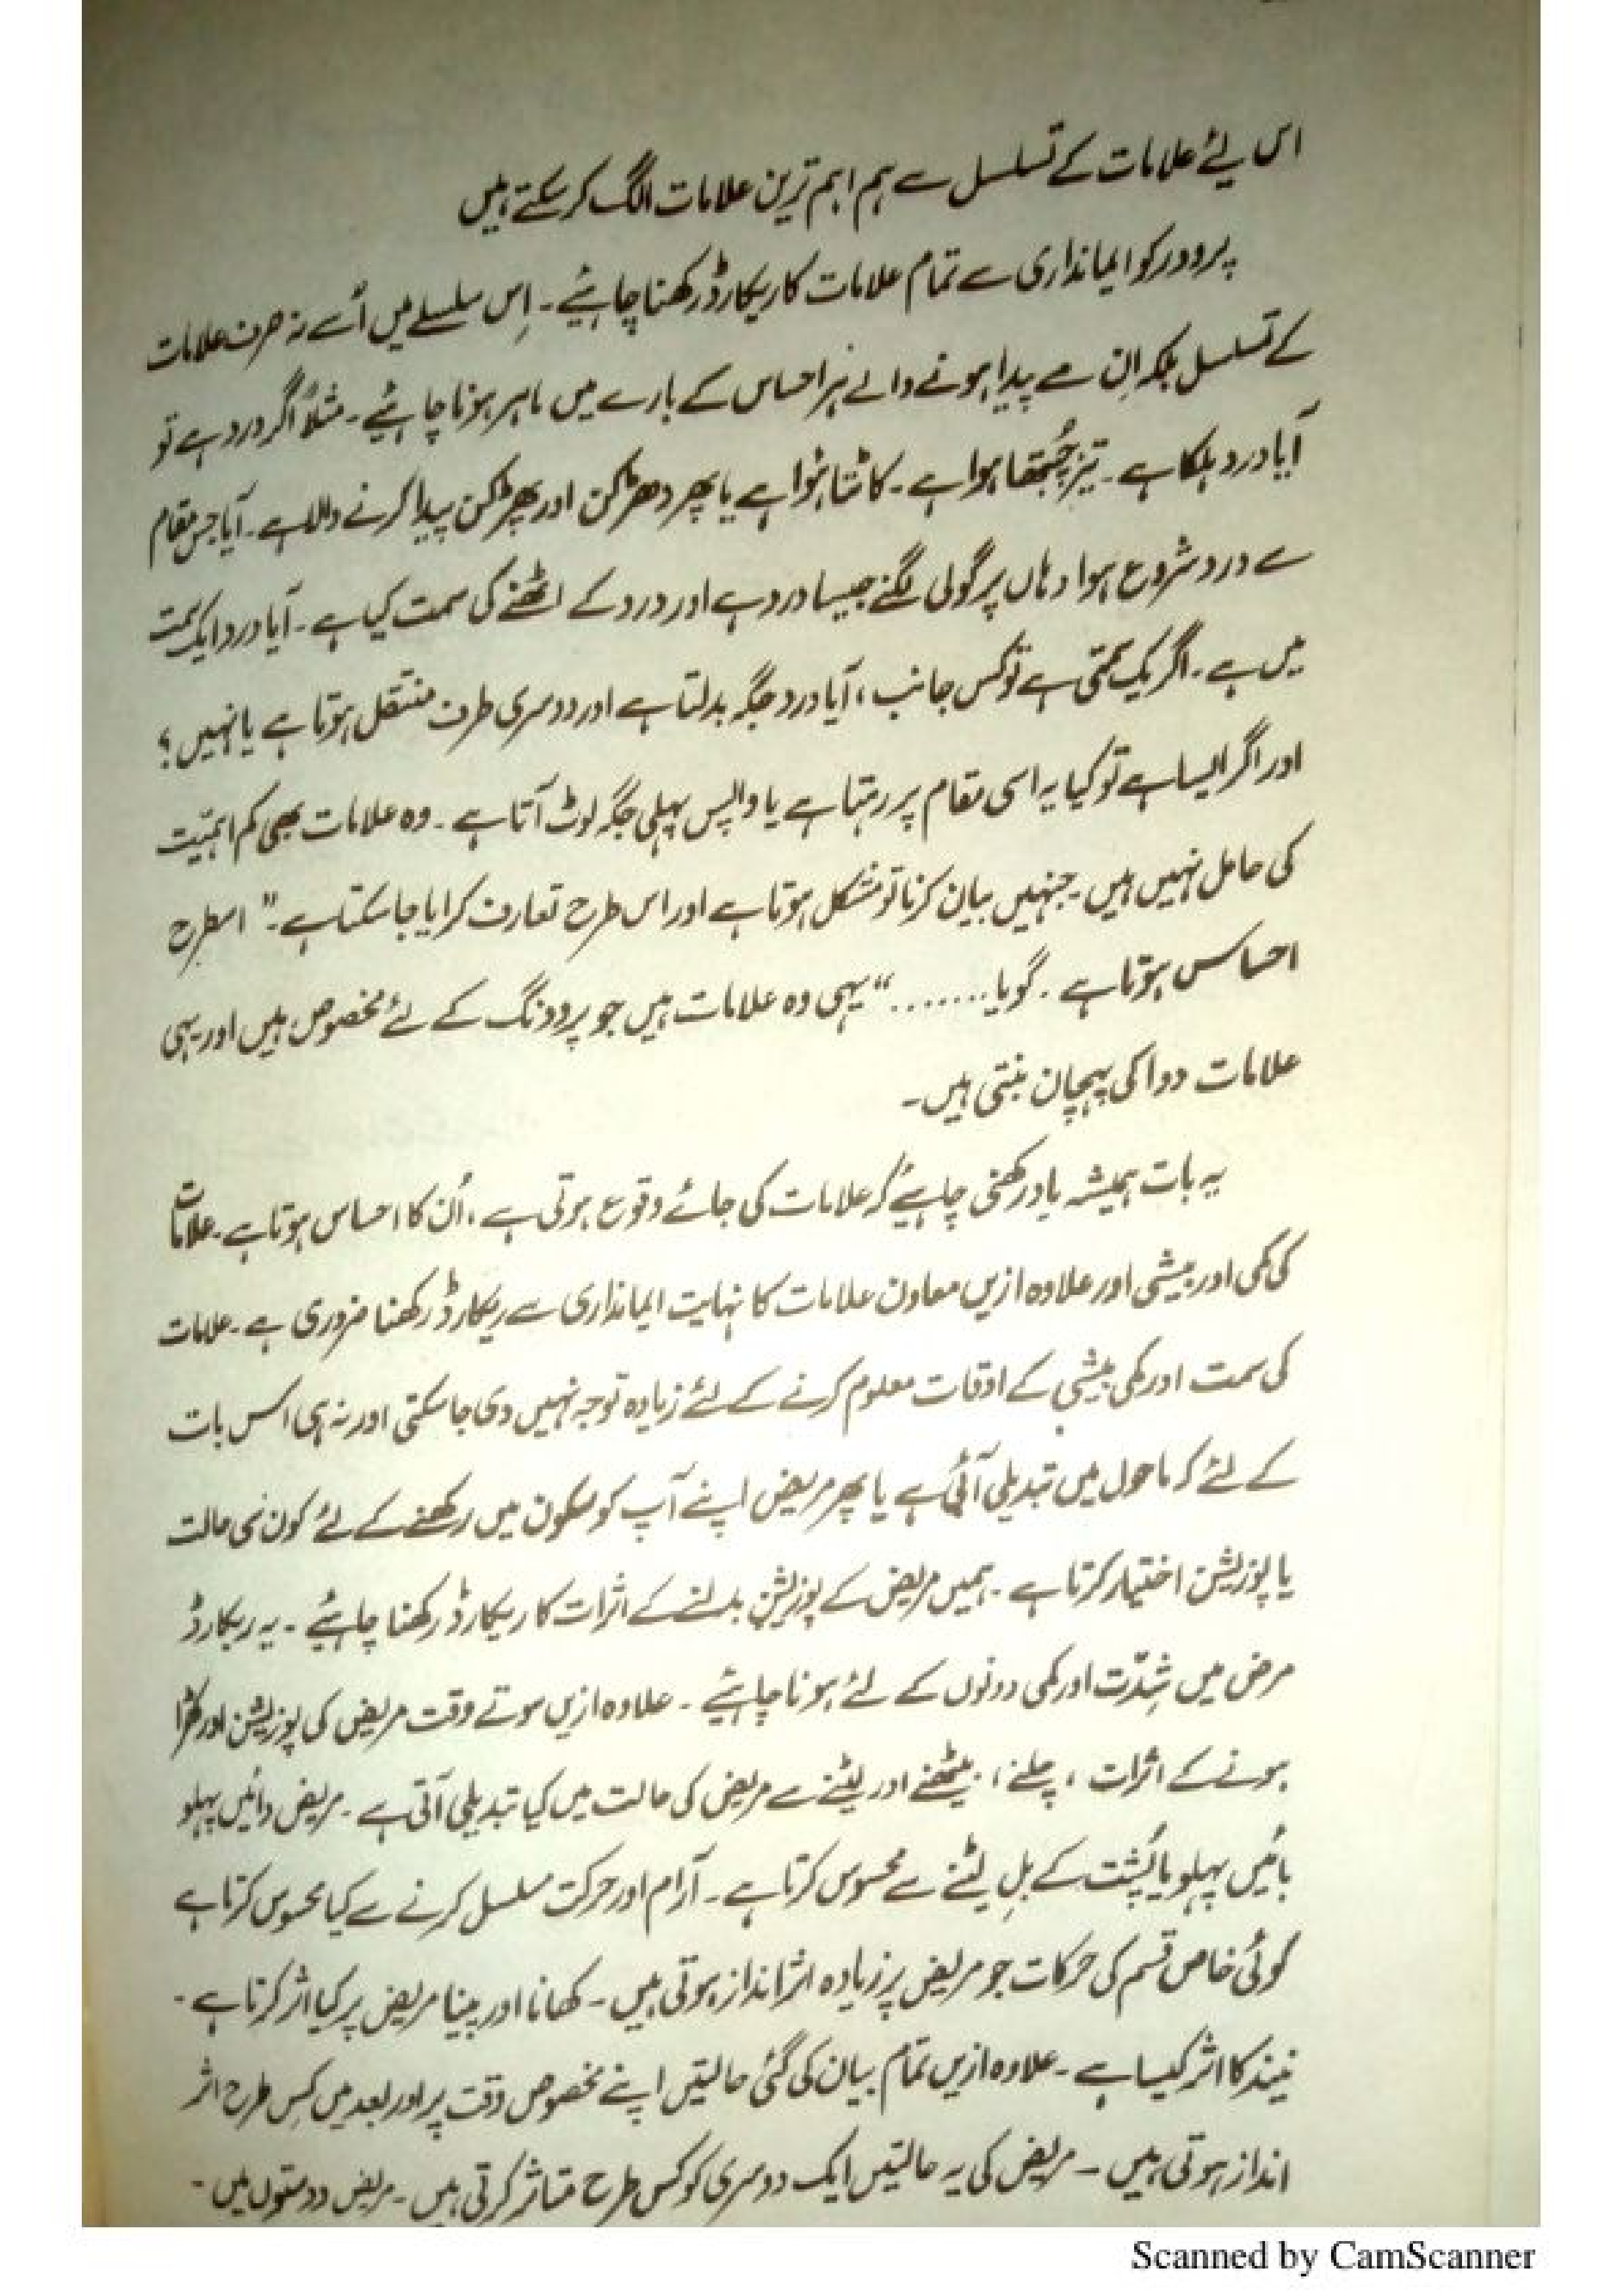 اس لیے علامات کے تسلسل سے ہم اہم ترین علامات الگ کر سکتے ہیں
پروور کو ایمانداری سے تمام علامات کا ریکارڈ رکھنا چاہئیے ۔ اِس سلسلے میں اُسے نہ صرف علامات
کے تسلسل بلکہ اِن سے پیدا ہونے والے ہر احساس کے بارے میں ماہر ہونا چاہئیے ۔ مثلاً اگر درد ہے تو
آیا درد ہلکا ہے ۔ تیز چُبھتا ہوا ہے ۔ کاٹتا ہُوا ہے یا پھر دھڑکن اور پھڑکن پیدا کرنے والا ہے ۔ آیا جس مقام
سے درد شروع ہوا وہاں پر گولی لگنے جیسا درد ہے اور درد کے اٹھنے کی سمت کیا ہے ۔ آیا درد ایک سمت
میں ہے ۔ اگر یک سمتی ہے تو کس جانب ، آیا درد جگہ بدلتا ہے اور دوسری طرف منتقل ہوتا ہے یا نہیں ؟
اور اگر ایسا ہے تو کیا یہ اسی مقام پر رہتا ہے یا واپس پہلی جگہ لوٹ آتا ہے ۔ وہ علامات بھی کم اہمیّت
کی حامل نہیں ہیں ۔ جنہیں بیان کرنا تو مشکل ہوتا ہے اور اس طرح تعارف کرایا جا سکتا ہے ۔ " اسطرح
احساس ہوتا ہے ۔ گویا ........ “ یہی وہ علامات ہیں جو پروونگ کے لئے مخصوص ہیں اور یہی
علامات دوا کی پہچان بنتی ہیں ۔
یہ بات ہمیشہ یاد رکھنی چاہیئے کہ علامات کی جائے وقوع ہوتی ہے ، اُن کا احساس ہوتا ہے ۔ علامات
کی کمی اور بیشی اور علاوہ ازیں معاون علامات کا نہایت ایمانداری سے ریکارڈ رکھنا ضروری ہے ۔ علامات
کی سمت اور کمی بیشی کے اوقات معلوم کرنے کے لئے زیادہ توجہ نہیں دی جا سکتی اور نہ ہی اس بات
کے لئے کہ ماحول میں تبدیلی آئی ہے یا پھر مریض اپنے آپ کو سکون میں رکھنے کے لئے کون سی حالت
یا پوزیشن اختیار کرتا ہے ۔ ہمیں مریض کے پوزیشن بدلنے کے اثرات کا ریکارڈ رکھنا چاہئیے ۔ یہ ریکارڈ
مرض میں شِدّت اور کمی دونوں کے لئے ہونا چاہئیے ۔ علاوہ ازیں سوتے وقت مریض کی پوزیشن اور کھڑا
ہونے کے اثرات ، چلنے ، بیٹھنے اور لیٹنے سے مریض کی حالت میں کیا تبدیلی آتی ہے ۔ مریض دائیں پہلو
بائیں پہلو یا پُشت کے بلِ لیٹنے سے محسوس کرتا ہے ۔ آرام اور حرکت مسلسل کرنے سے کیا محسوس کرتا ہے
کوئی خاص قسم کی حرکات جو مریض پر زیادہ اثر انداز ہوتی ہیں ۔ کھانا اور پینا مریض پر کیا اثر کرتا ہے ۔
نیند کا اثر کیسا ہے ۔ علاوہ ازیں تمام بیان کی گئی حالتیں اپنے مخصوص وقت پر اور بعد میں کِس طرح اثر
انداز ہوتی ہیں ۔ مریض کی یہ حالتیں ایک دوسری کو کس طرح متاثر کرتی ہیں ۔ مریض دوستوں میں ۔
Scanned by CamScanner